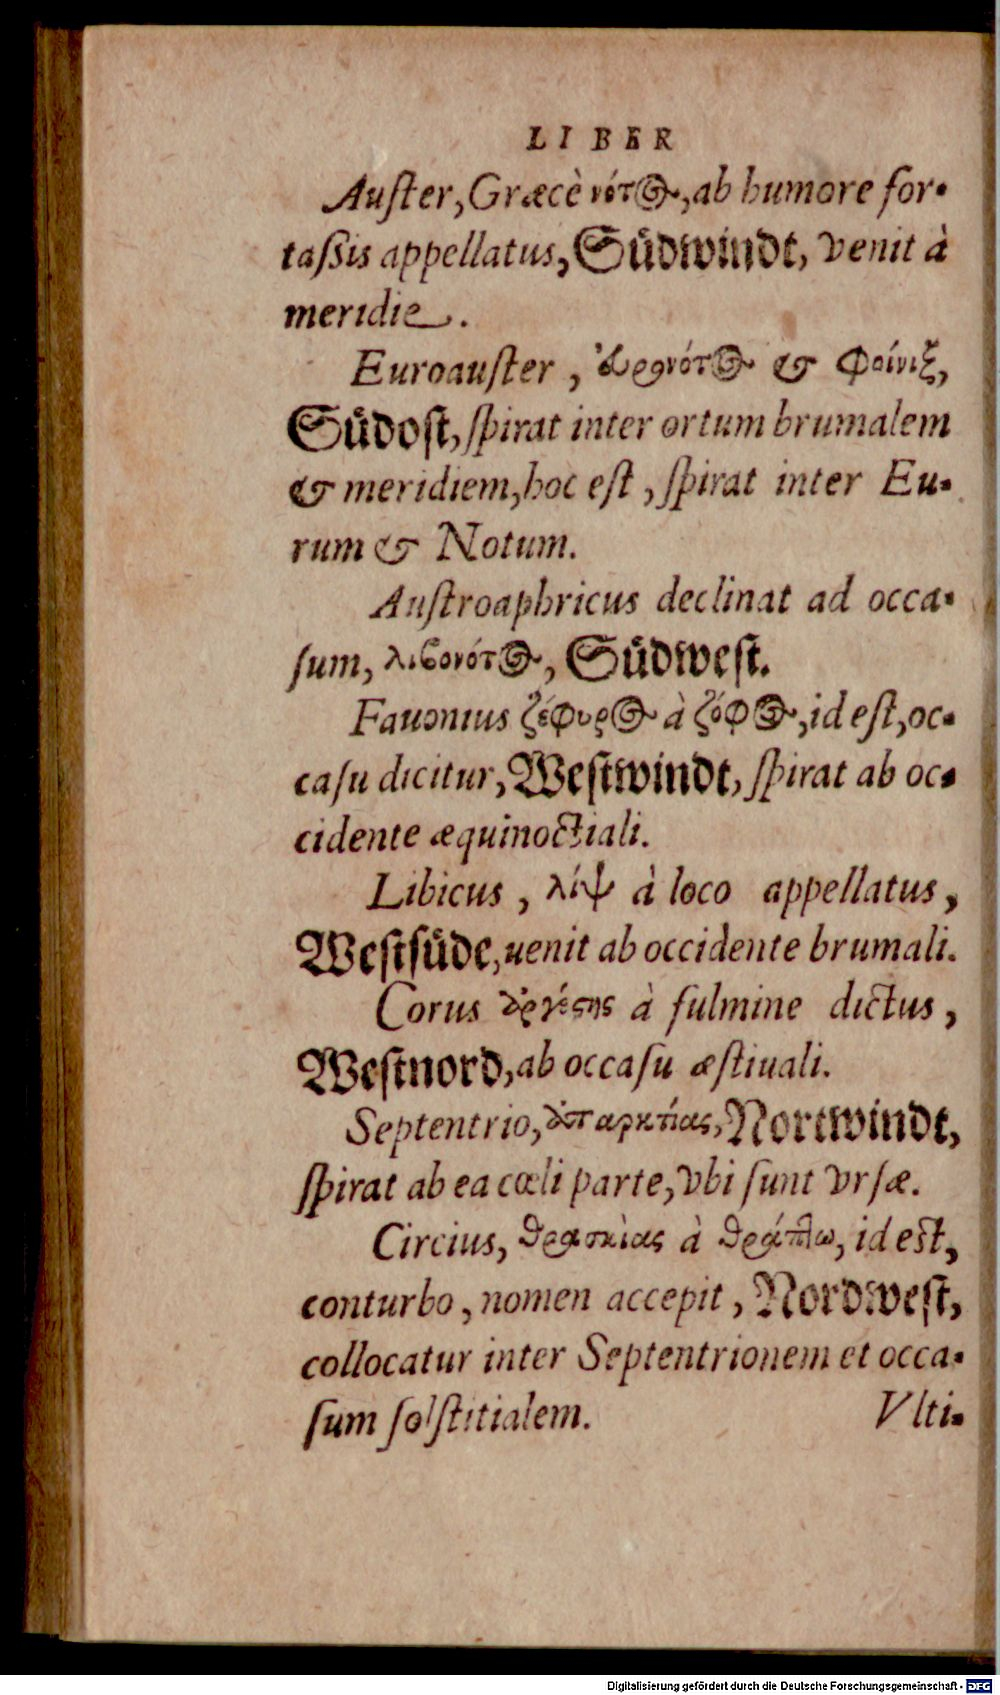 LIBER
Auſter, Græcè νότος, ab humore for-
taſsis appellatus, Südwindt, venit à
meridie.
Euroauſter, ἐυρονότος & Φοίνιξ,
Südoſt, ſpirat inter ortum brumalem
& meridiem, hoc eſt, ſpirat inter Eu-
rum & Notum.
Auſtroaphricus declinat ad occa-
ſum, λιβονότος, Südweſt.
Fauonius ζέφυρος à ζόφος, id eſt, oc-
caſu dicitur, Weſtwindt, ſpirat ab oc-
cidente æquinoctiali.
Libicus, λίψ à loco appellatus,
Weſtſüde, uenit ab occidente brumali.
Corus ἀργέστης à fulmine dictus,
Weſtnord, ab occaſu æſtiuali.
Septentrio, ἀπαρκτίας, Nortwindt,
ſpirat ab ea cœli parte, vbi ſunt vrſæ.
Circius, θρασκίας à θράττω, id eſt,
conturbo, nomen accepit, Nordweſt,
collocatur inter Septentrionem et occa-
ſum ſolſtitialem. Vlti-
Digitalisierung gefördert durch die Deutsche Forschungsgemeinschaft - DFG